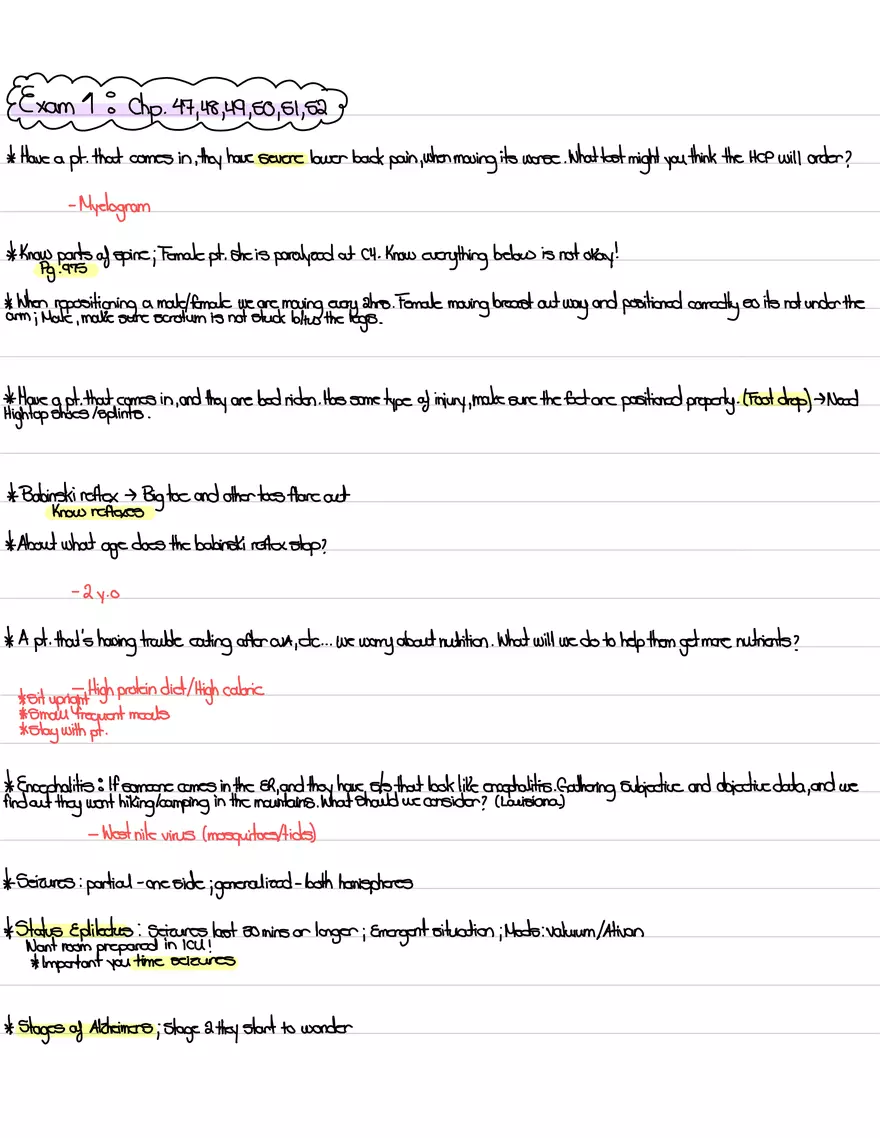 Exam 1: Chp. 47,48,49,50,51,52
* Have a pt. that comes in, they have severe lower back pain, when moving its worse. What test might you think the HCP will order?
- Myelogram
* Know parts of spine; Female pt. she is paralyzed at C4. Know everything below is not okay!
Pg. 975
* When repositioning a male/female we are moving every 2hrs. Female moving breast out way and positioned correctly so its not under the
arm; Male, make sure scrotum is not stuck b/tw the legs.
* Have a pt. that comes in, and they are bed riden. Has some type of injury, make sure the feet are positioned properly. (Foot drop) → Need
Hightop shoes/splints.
* Babinski reflex → Big toe and other toes flare out
Know reflexes
* About what age does the babinski reflex stop?
- 2 y.o
* A pt. that's having trouble eating after CVA, etc... we worry about nutrition. What will we do to help them get more nutrients?
- High protein diet/High caloric
* Sit upright
* Small frequent meals
* Stay with pt.
* Encephalitis: If someone comes in the ER, and they have s/s that look like encephalitis. Gathering subjective and objective data, and we
find out they went hiking/camping in the mountains. What should we consider? (Louisiana)
- West nile virus (mosquitoes/ticks)
* Seizures: partial - one side; generalized - both hemispheres
* Status Epileptus: Seizures last 30 mins or longer; Emergent situation; Meds: valium/Ativan
Want room prepared in ICU!
* Important you time seizures
* Stages of Alzheimers; Stage 2 they start to wander